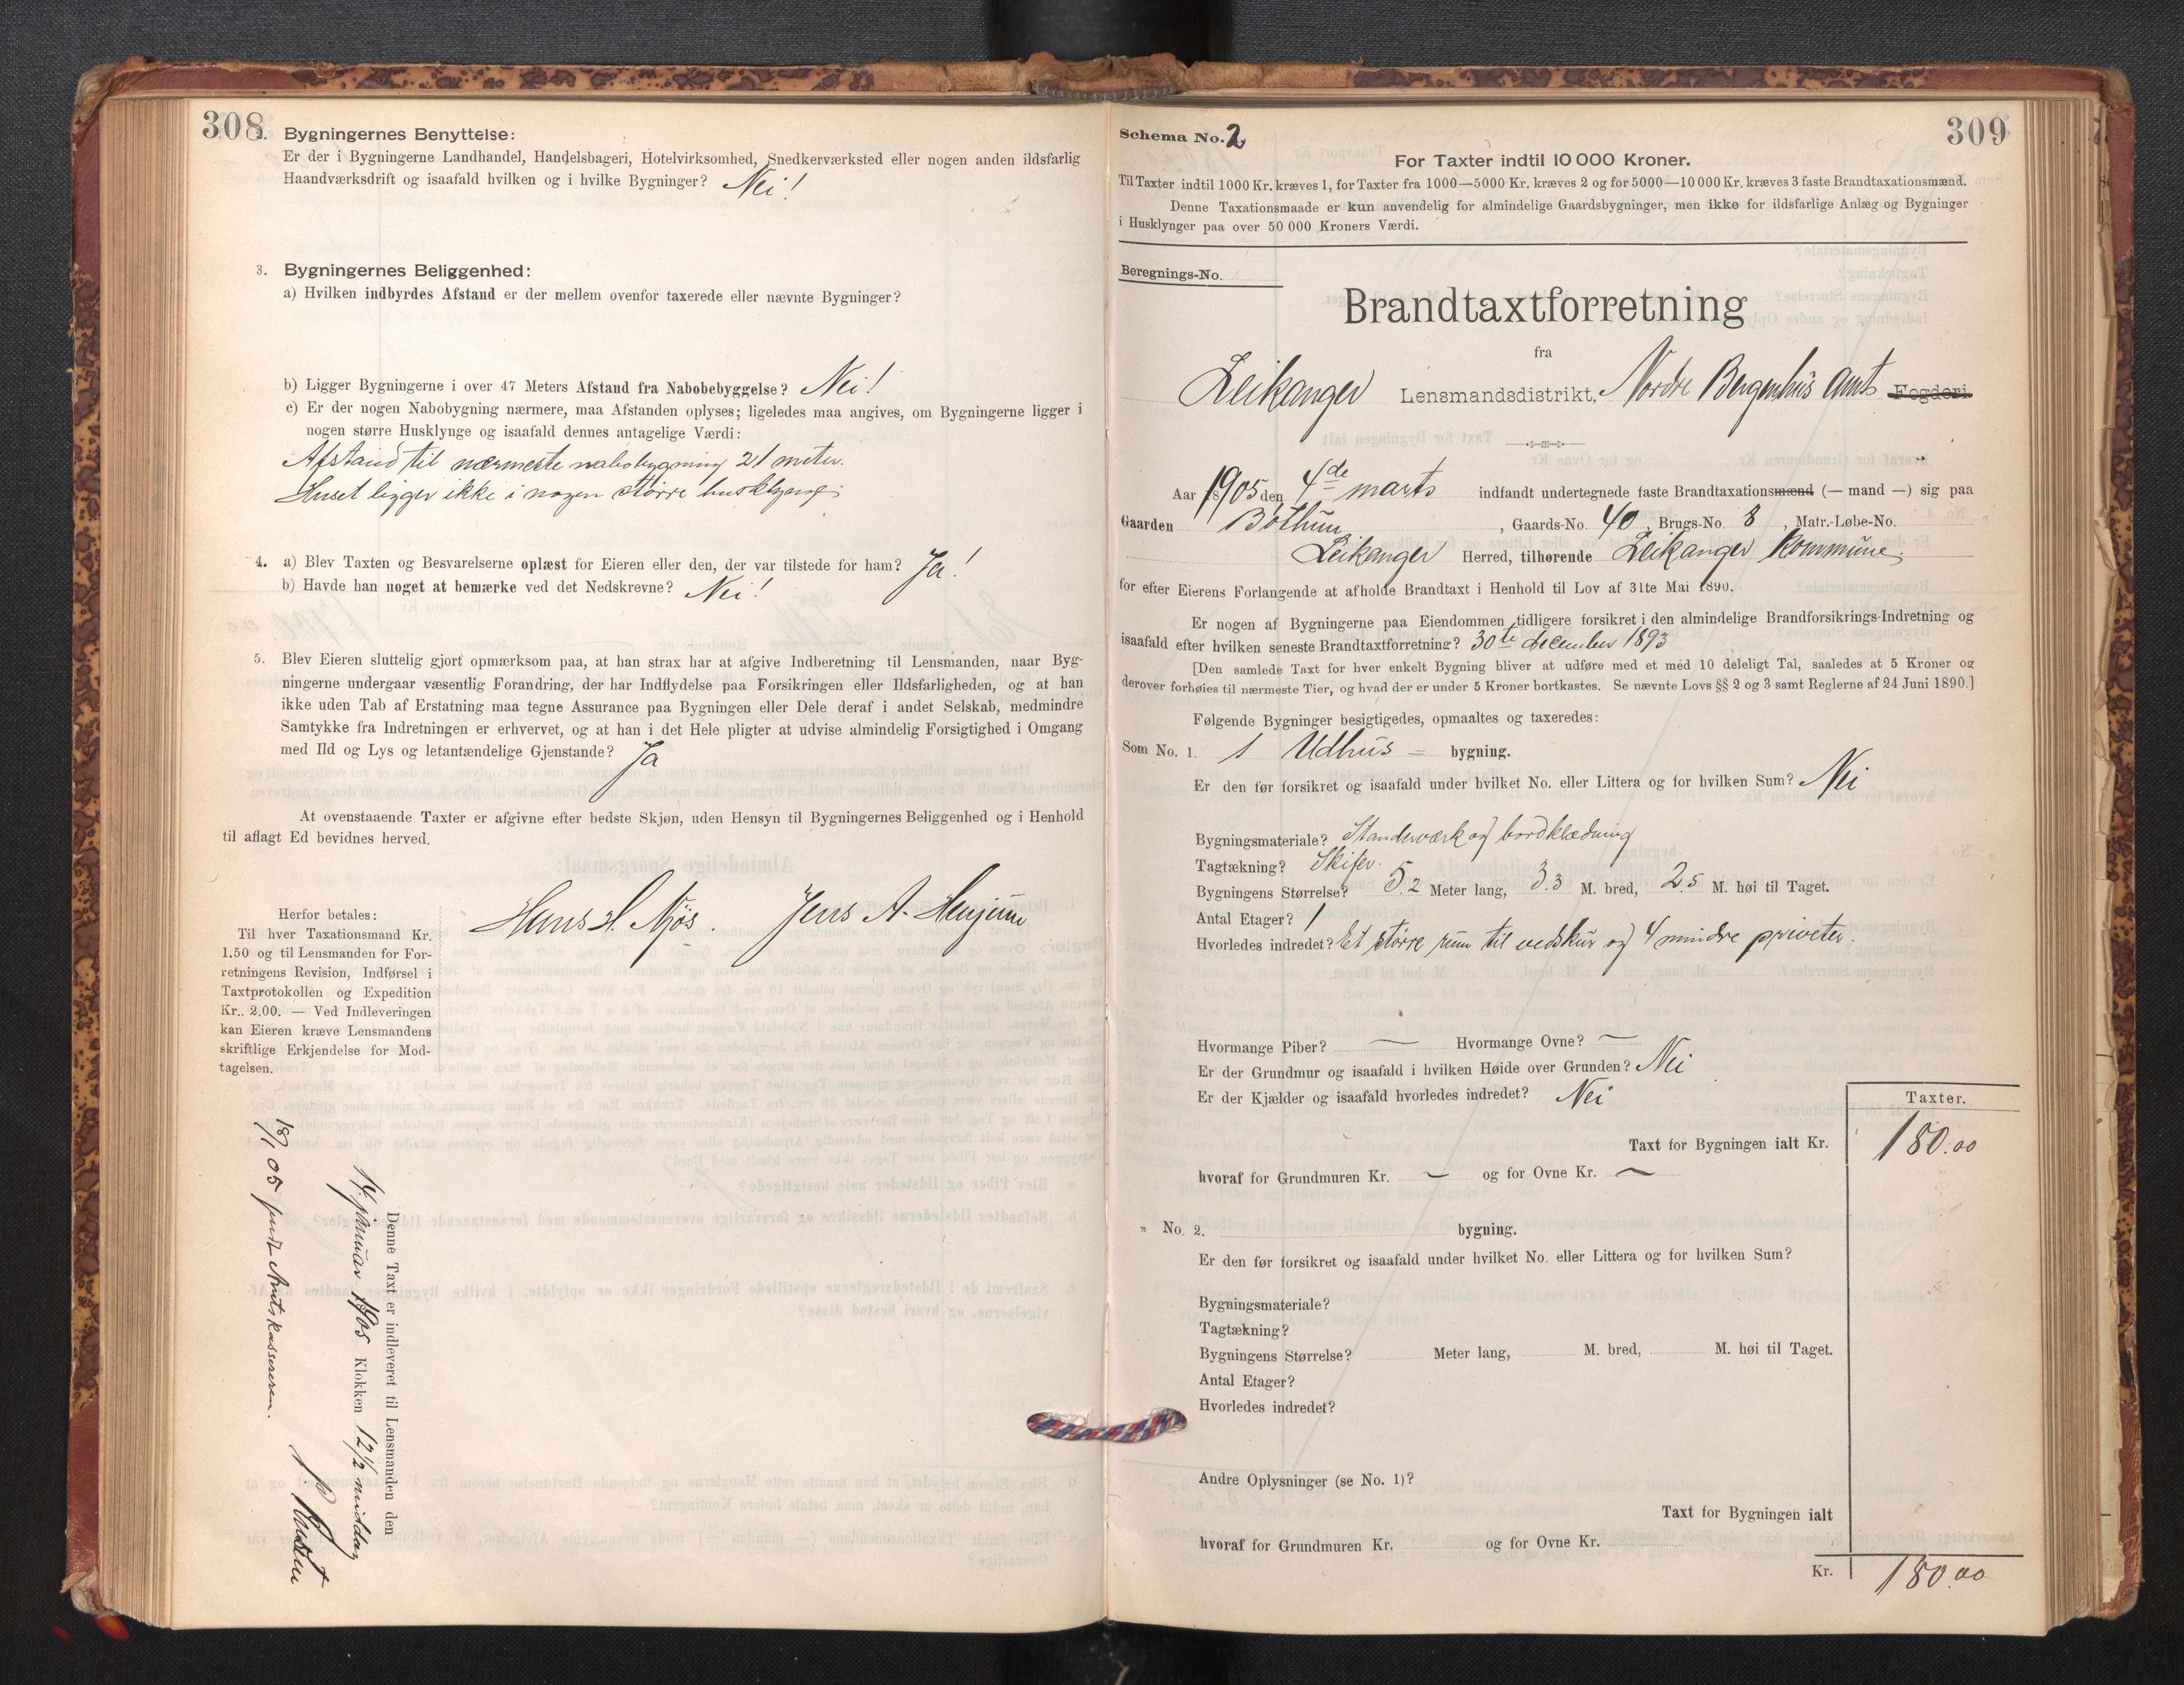 308
2. Bygningernes Benyttelse:
Er der i Bygningerne Landhandel, Handelsbageri, Hotelvirksomhed, Snedkerværksted eller nogen anden ildsfarlig
Haandværksdrift og isaafald hvilken og i hvilke Bygninger? Nei!
3. Bygningernes Beliggenhed:
a) Hvilken indbyrdes Afstand er der mellem ovenfor taxerede eller nævnte Bygninger?
b) Ligger Bygningerne i over 47 Meters Afstand fra Nabobebyggelse? Nei!
c) Er der nogen Nabobygning nærmere, maa Afstanden oplyses; ligeledes maa angives, om Bygningerne ligger i
nogen større Husklynge og isaafald dennes antagelige Værdi:
Afstand til nærmeste nabobygning 21 meter.
Huset ligger ikke i nogen større husklynge;
4. a) Blev Taxten og Besvarelserne oplæst for Eieren eller den, der var tilstede for ham? Ja!
b) Havde han noget at bemærke ved det Nedskrevne? Nei!
5. Blev Eieren sluttelig gjort opmærksom paa, at han strax har at afgive Indberetning til Lensmanden, naar Byg-
ningerne undergaar væsentlig Forandring, der har Indflydelse paa Forsikringen eller Ildsfarligheden, og at han
ikke uden Tab af Erstatning maa tegne Assurance paa Bygningen eller Dele deraf i andet Selskab, medmindre
Samtykke fra Indretningen er erhvervet, og at han i det Hele pligter at udvise almindelig Forsigtighed i Omgang
med Ild og Lys og letantændelige Gjenstande? Ja
At ovenstaaende Taxter er afgivne efter bedste Skjøn, uden Hensyn til Bygningernes Beliggenhed og i Henhold
til aflagt Ed bevidnes herved.
Hans H. Njøs. Jens A. Henjum
Herfor betales:
Til hver Taxationsmand Kr.
1.50 og til Lensmanden for For-
retningens Revision, Indførsel i
Taxtprotokollen og Expedition
Kr. 2.00. — Ved Indleveringen
kan Eieren kræve Lensmandens
skriftlige Erkjendelse for Mod-
tagelsen.
Denne Taxt er indleveret til Lensmanden den
14. januar 1905 Klokken 12 1/2 middag
18/1 05 sendt Amtskasseren.
309
Schema No. 2
For Taxter indtil 10 000 Kroner.
Til Taxter indtil 1000 Kr. kræves 1, for Taxter fra 1000—5000 Kr. kræves 2 og for 5000—10 000 Kr. kræves 3 faste Brandtaxationsmænd.
Denne Taxationsmaade er kun anvendelig for almindelige Gaardsbygninger, men ikke for ildsfarlige Anlæg og Bygninger
i Husklynger paa over 50 000 Kroners Værdi.
Beregnings-No.
Brandtaxtforretning
fra
Leikanger Lensmandsdistrikt, Nordre Bergenhus Amts Fogderi
Aar 1905 den 4de marts indfandt undertegnede faste Brandtaxationsmænd (— mand —) sig paa
Gaarden Bothun, Gaards-No. 40, Brugs-No. 8, Matr.-Løbe-No.
Leikanger Herred, tilhørende Leikanger Kommune;
for efter Eierens Forlangende at afholde Brandtaxt i Henhold til Lov af 31te Mai 1890.
Er nogen af Bygningerne paa Eiendommen tidligere forsikret i den almindelige Brandforsikrings-Indretning og
isaafald efter hvilken seneste Brandtaxtforretning? 30te december 1893
[Den samlede Taxt for hver enkelt Bygning bliver at udføre med et med 10 deleligt Tal, saaledes at 5 Kroner og
derover forhøies til nærmeste Tier, og hvad der er under 5 Kroner bortkastes. Se nævnte Lovs §§ 2 og 3 samt Reglerne af 24 Juni 1890.]
Følgende Bygninger besigtigedes, opmaaltes og taxeredes:
Som No. 1. 1 Udhus = bygning.
Er den før forsikret og isaafald under hvilket No. eller Littera og for hvilken Sum? Nei
Bygningsmateriale? Standerværk og bordklædning
Tagtækning? Skifer.
Bygningens Størrelse? 5.2 Meter lang, 3.3 M. bred, 2.5 M. høi til Taget.
Antal Etager? 1
Hvorledes indredet? Et større rum til vedskur og 4 mindre priveter.
Hvormange Piber? — Hvormange Ovne? —
Er der Grundmur og isaafald i hvilken Høide over Grunden? Nei
Er der Kjælder og isaafald hvorledes indredet? Nei
Taxter.
Taxt for Bygningen ialt Kr. 180.00
hvoraf for Grundmuren Kr. — og for Ovne Kr. —
" No. 2. bygning.
Er den før forsikret og isaafald under hvilket No. eller Littera og for hvilken Sum?
Bygningsmateriale?
Tagtækning?
Bygningens Størrelse? Meter lang, M. bred, M. høi til Taget.
Antal Etager?
Hvorledes indredet?
Andre Oplysninger (se No. 1)?
Taxt for Bygningen ialt
hvoraf for Grundmuren Kr. og for Ovne Kr.
Kr. 180.00